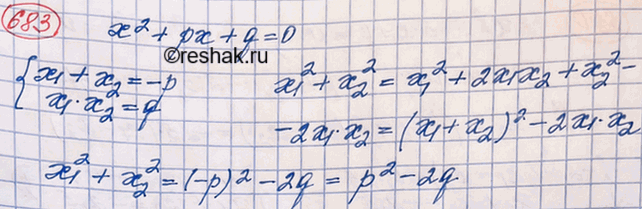 683
x² + px + q = 0
©reshak.ru
{ x₁ + x₂ = -p
x₁ · x₂ = q
x₁² + x₂² = x₁² + 2x₁x₂ + x₂² -
- 2x₁·x₂ = (x₁ + x₂)² - 2x₁·x₂
x₁² + x₂² = (-p)² - 2q = p² - 2q